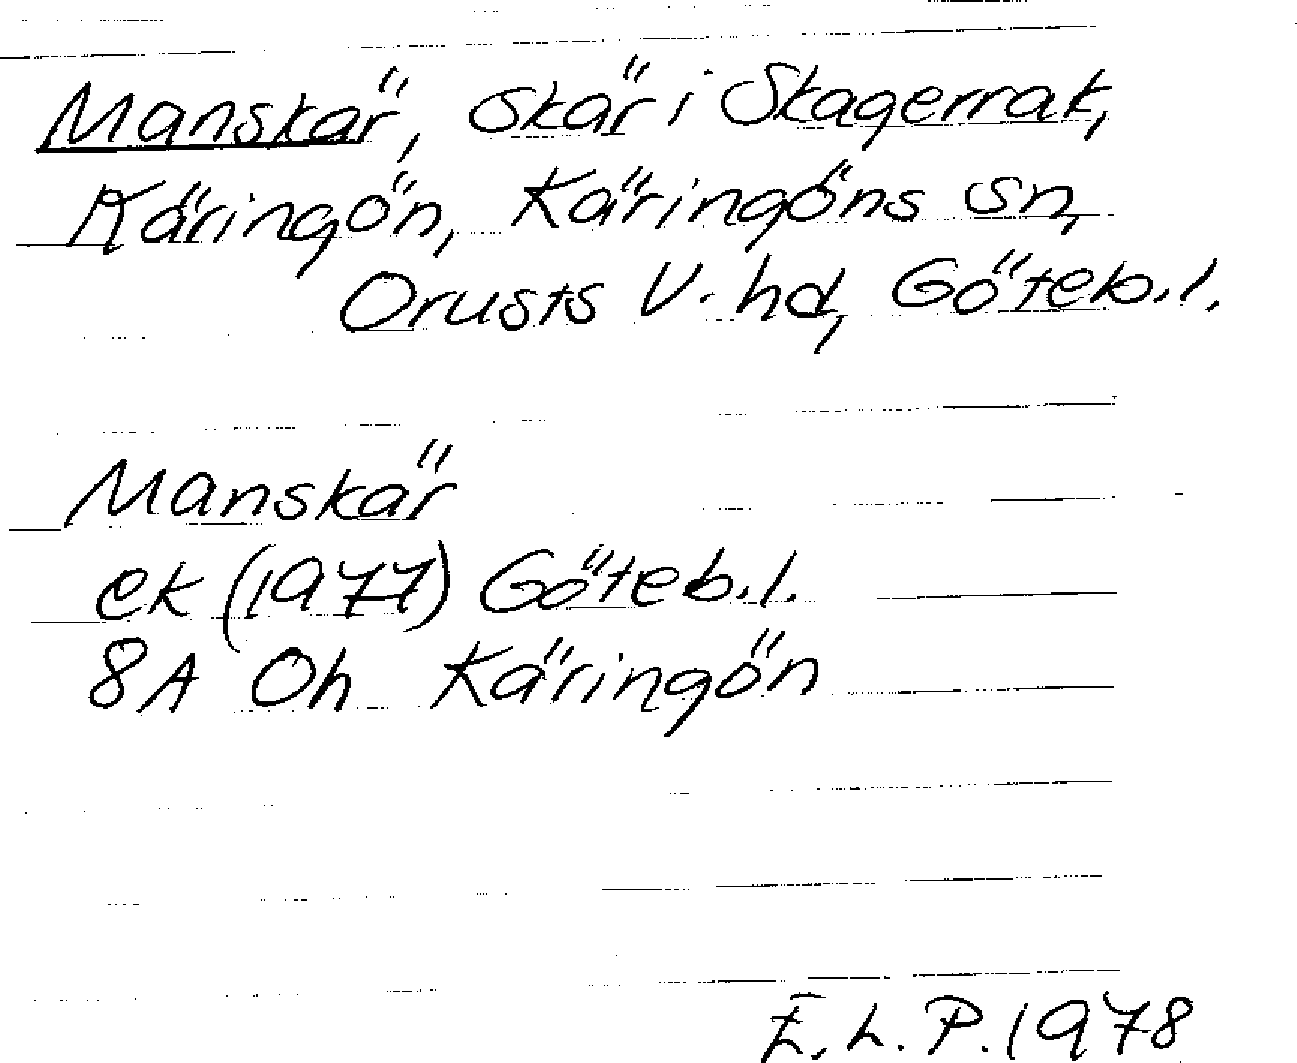 Manskär, skär i Skagerrak,
Käringön, Käringöns sn,
Orusts V. hd, Göteb.l.
Manskär
ek (1977) Göteb.l.
8A Oh Käringön
E.L.P. 1978